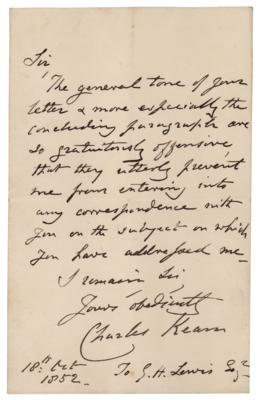 Sir
The general tone of your
letter & more especially the
concluding paragraph are
so gratuitously offensive,
that they utterly prevent
me from entering into
any correspondence with
you on the subject on which
you have addressed me.
I remain Sir,
Yours obediently
Charles Kean
18th Oct
1852.
To G. H. Lewis Esqr